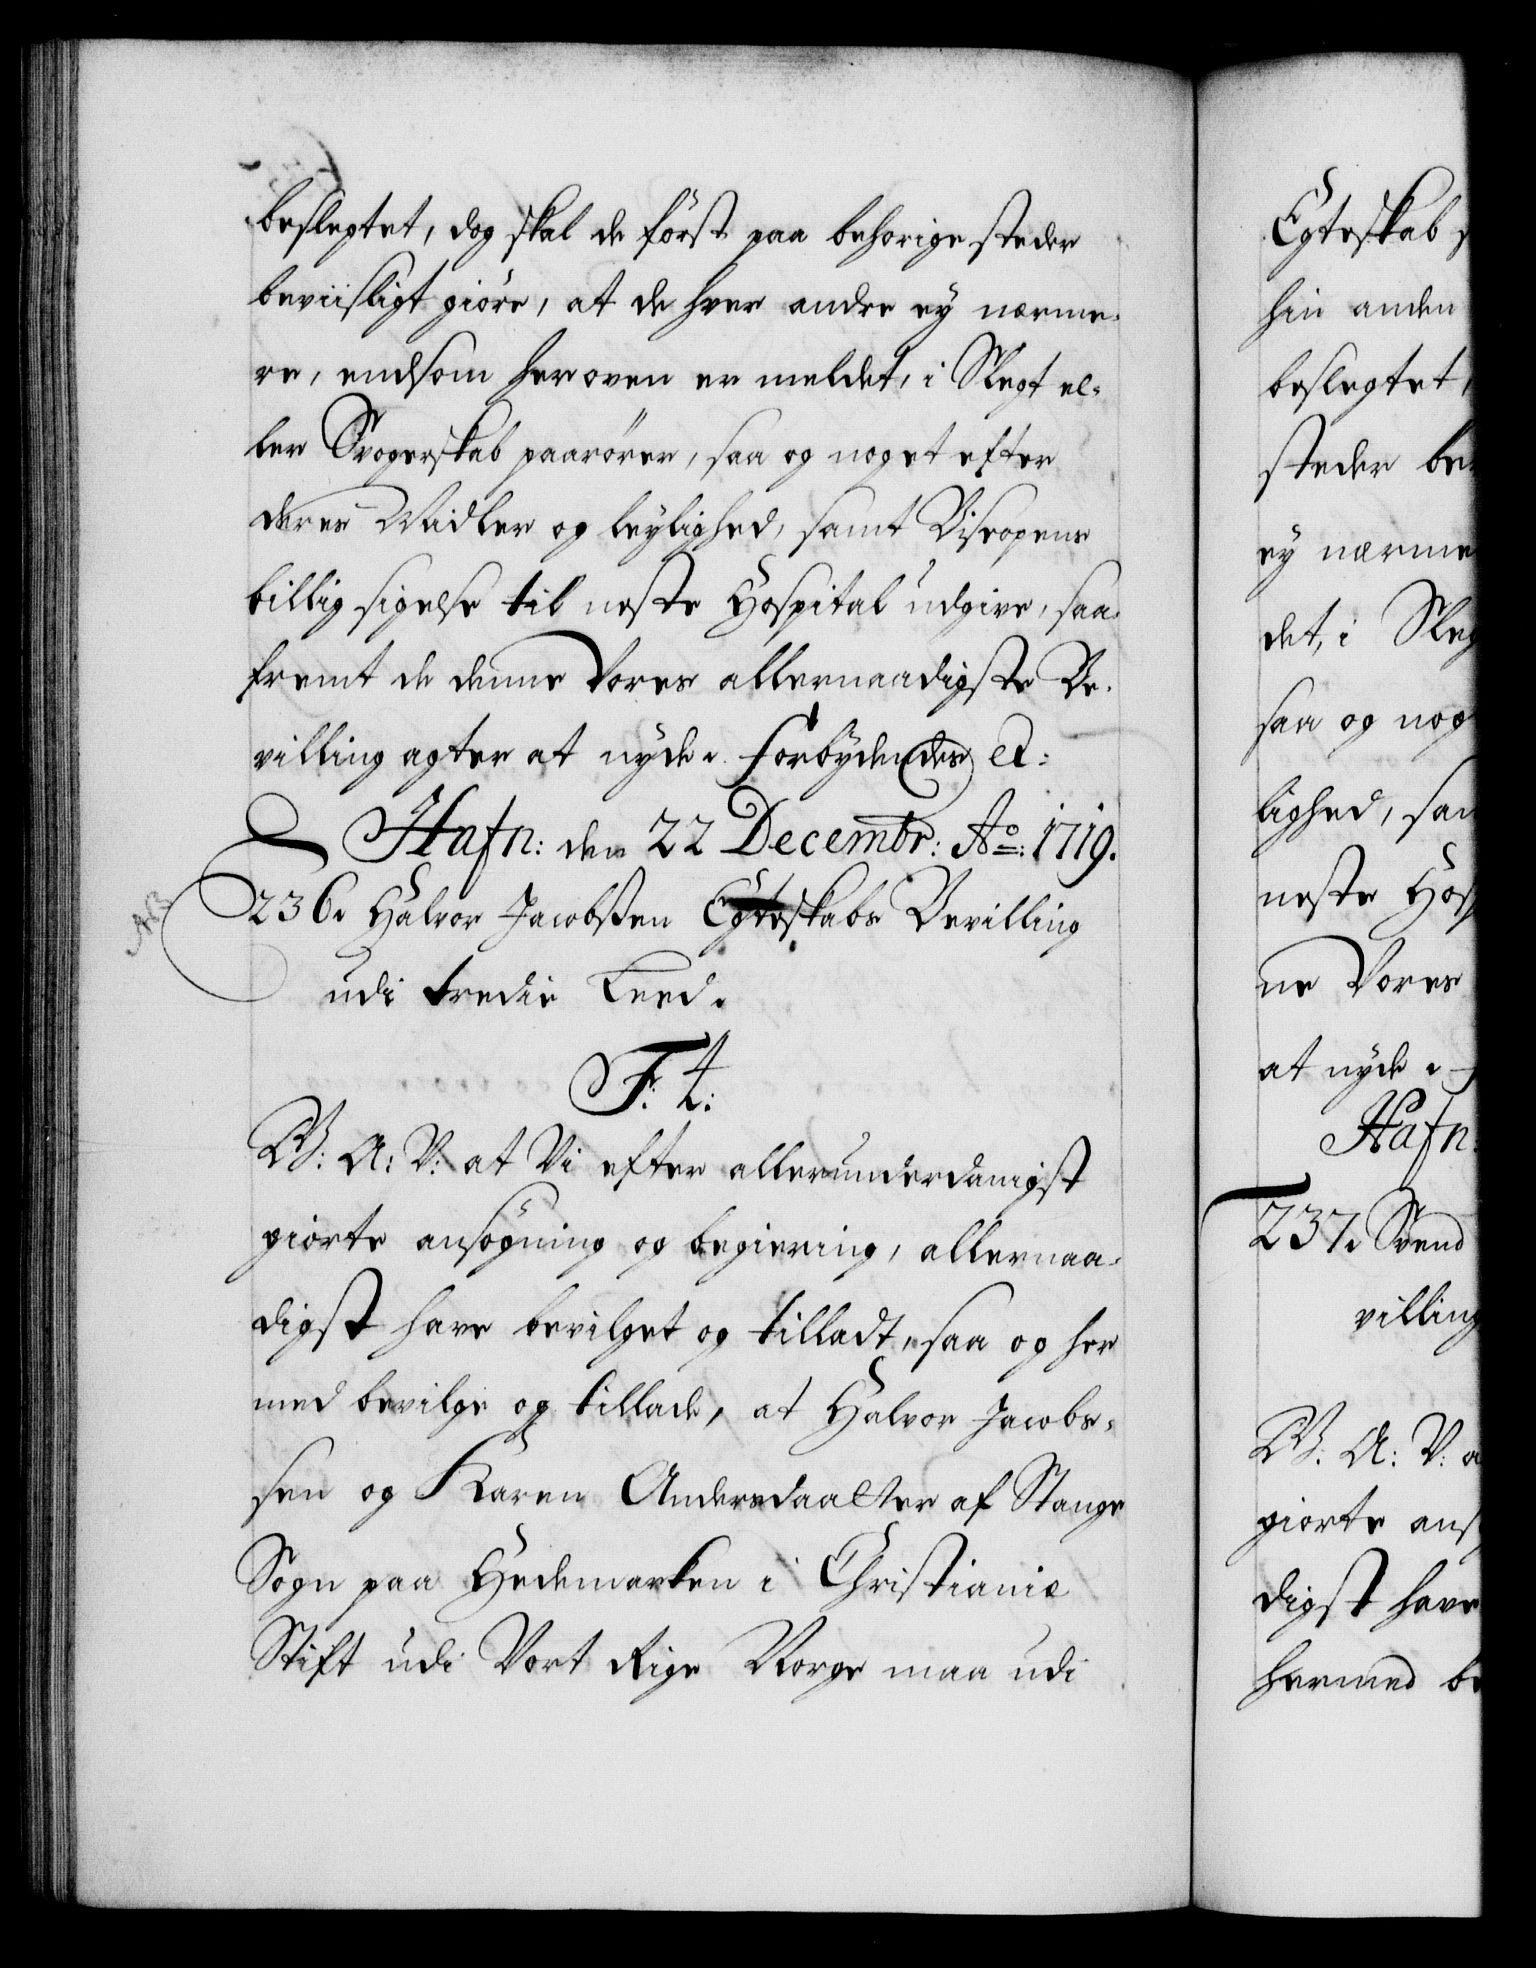 beslegtet, dog skal de först paa behorige steder
beviisligt giöre, at de hver andre ey nærme-
re, end som her oven er meldet, i Slegt el-
ler Svogerskab paarörer, saa og noget efter
deres Midler og leylighed, samt Biscopens
billig sigelse til neste Hospital udgive, saa-
fremt de denne Vores allernaadigste Be-
villing agter at nyde. Forbydendes et:
Hafn: den 22 Decembr: Ao: 1719.
NB
236. Halvor Jacobsen Egteskabs Bevilling
udi tredie Leed.
F. 4:
W: A: V: at Vi efter allerunderdanigst
giorte ansögning og begiering, allernaa-
digst have bevilget og tilladt, saa og her
med bevilge og tillade, at Halvor Jacobs-
sen og Karen Andersdaatter af Stange
Sogn paa Hedemarken i Christianiæ
Stift udi Vort Rige Norge maa udi
Egteskab
hin anden
beslegtet,
steder
ey nærme
det, i
saa og
lighed,
neste
ne Vores
at nyde.
Hafn:
237. Svend
villing
W: A: V:
giorte
digst have
hermed